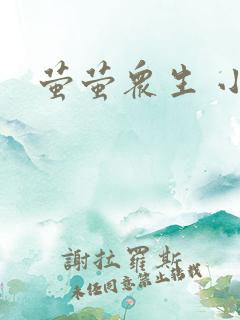 萤萤衆生 小
謝拉羅斯
未经同意禁止转载